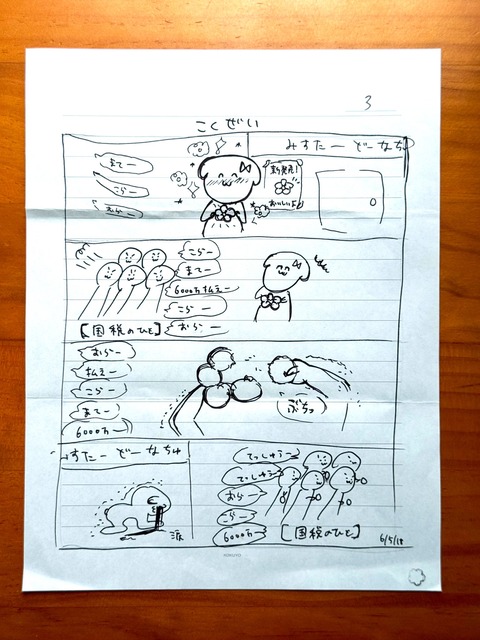 3
こくぜい
みすたー どーなちゅ
新発売!
おいしいよ
まてー
こらー
おらー
こらー
まてー
6000万払えー
こらー
おらー
[国税のひと]
おらー
払えー
こらー
まてー
6000万ー
ぶちっ
みすたー どーなちゅ
涙
てっしゅうー
てっしゅうー
おらー
こらー
6000万ー
[国税のひと]
6/5/18
KOKUYO